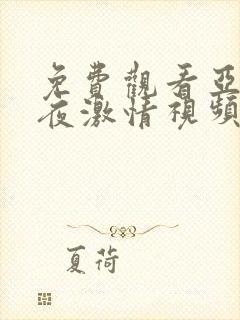 免費觀看亞
夜激情視頻
夏荷